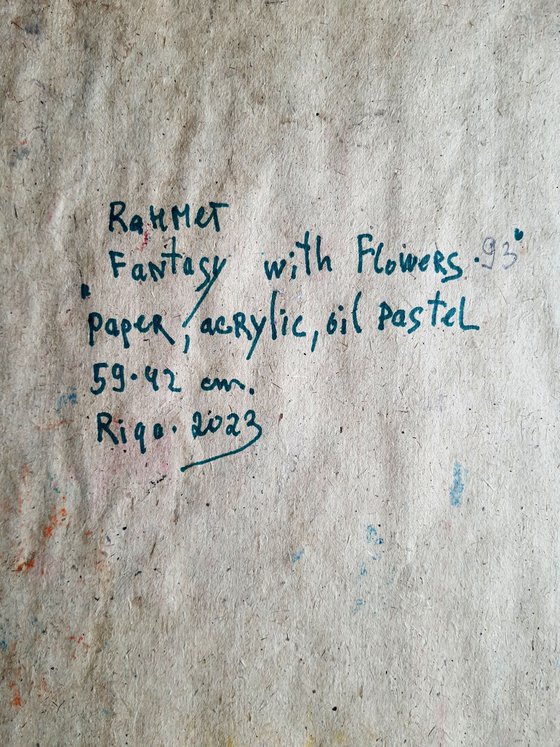 Rahmet
Fantasy with Flowers. 93"
"paper, acrylic, oil pastel
59.42 cm.
Riga. 2023